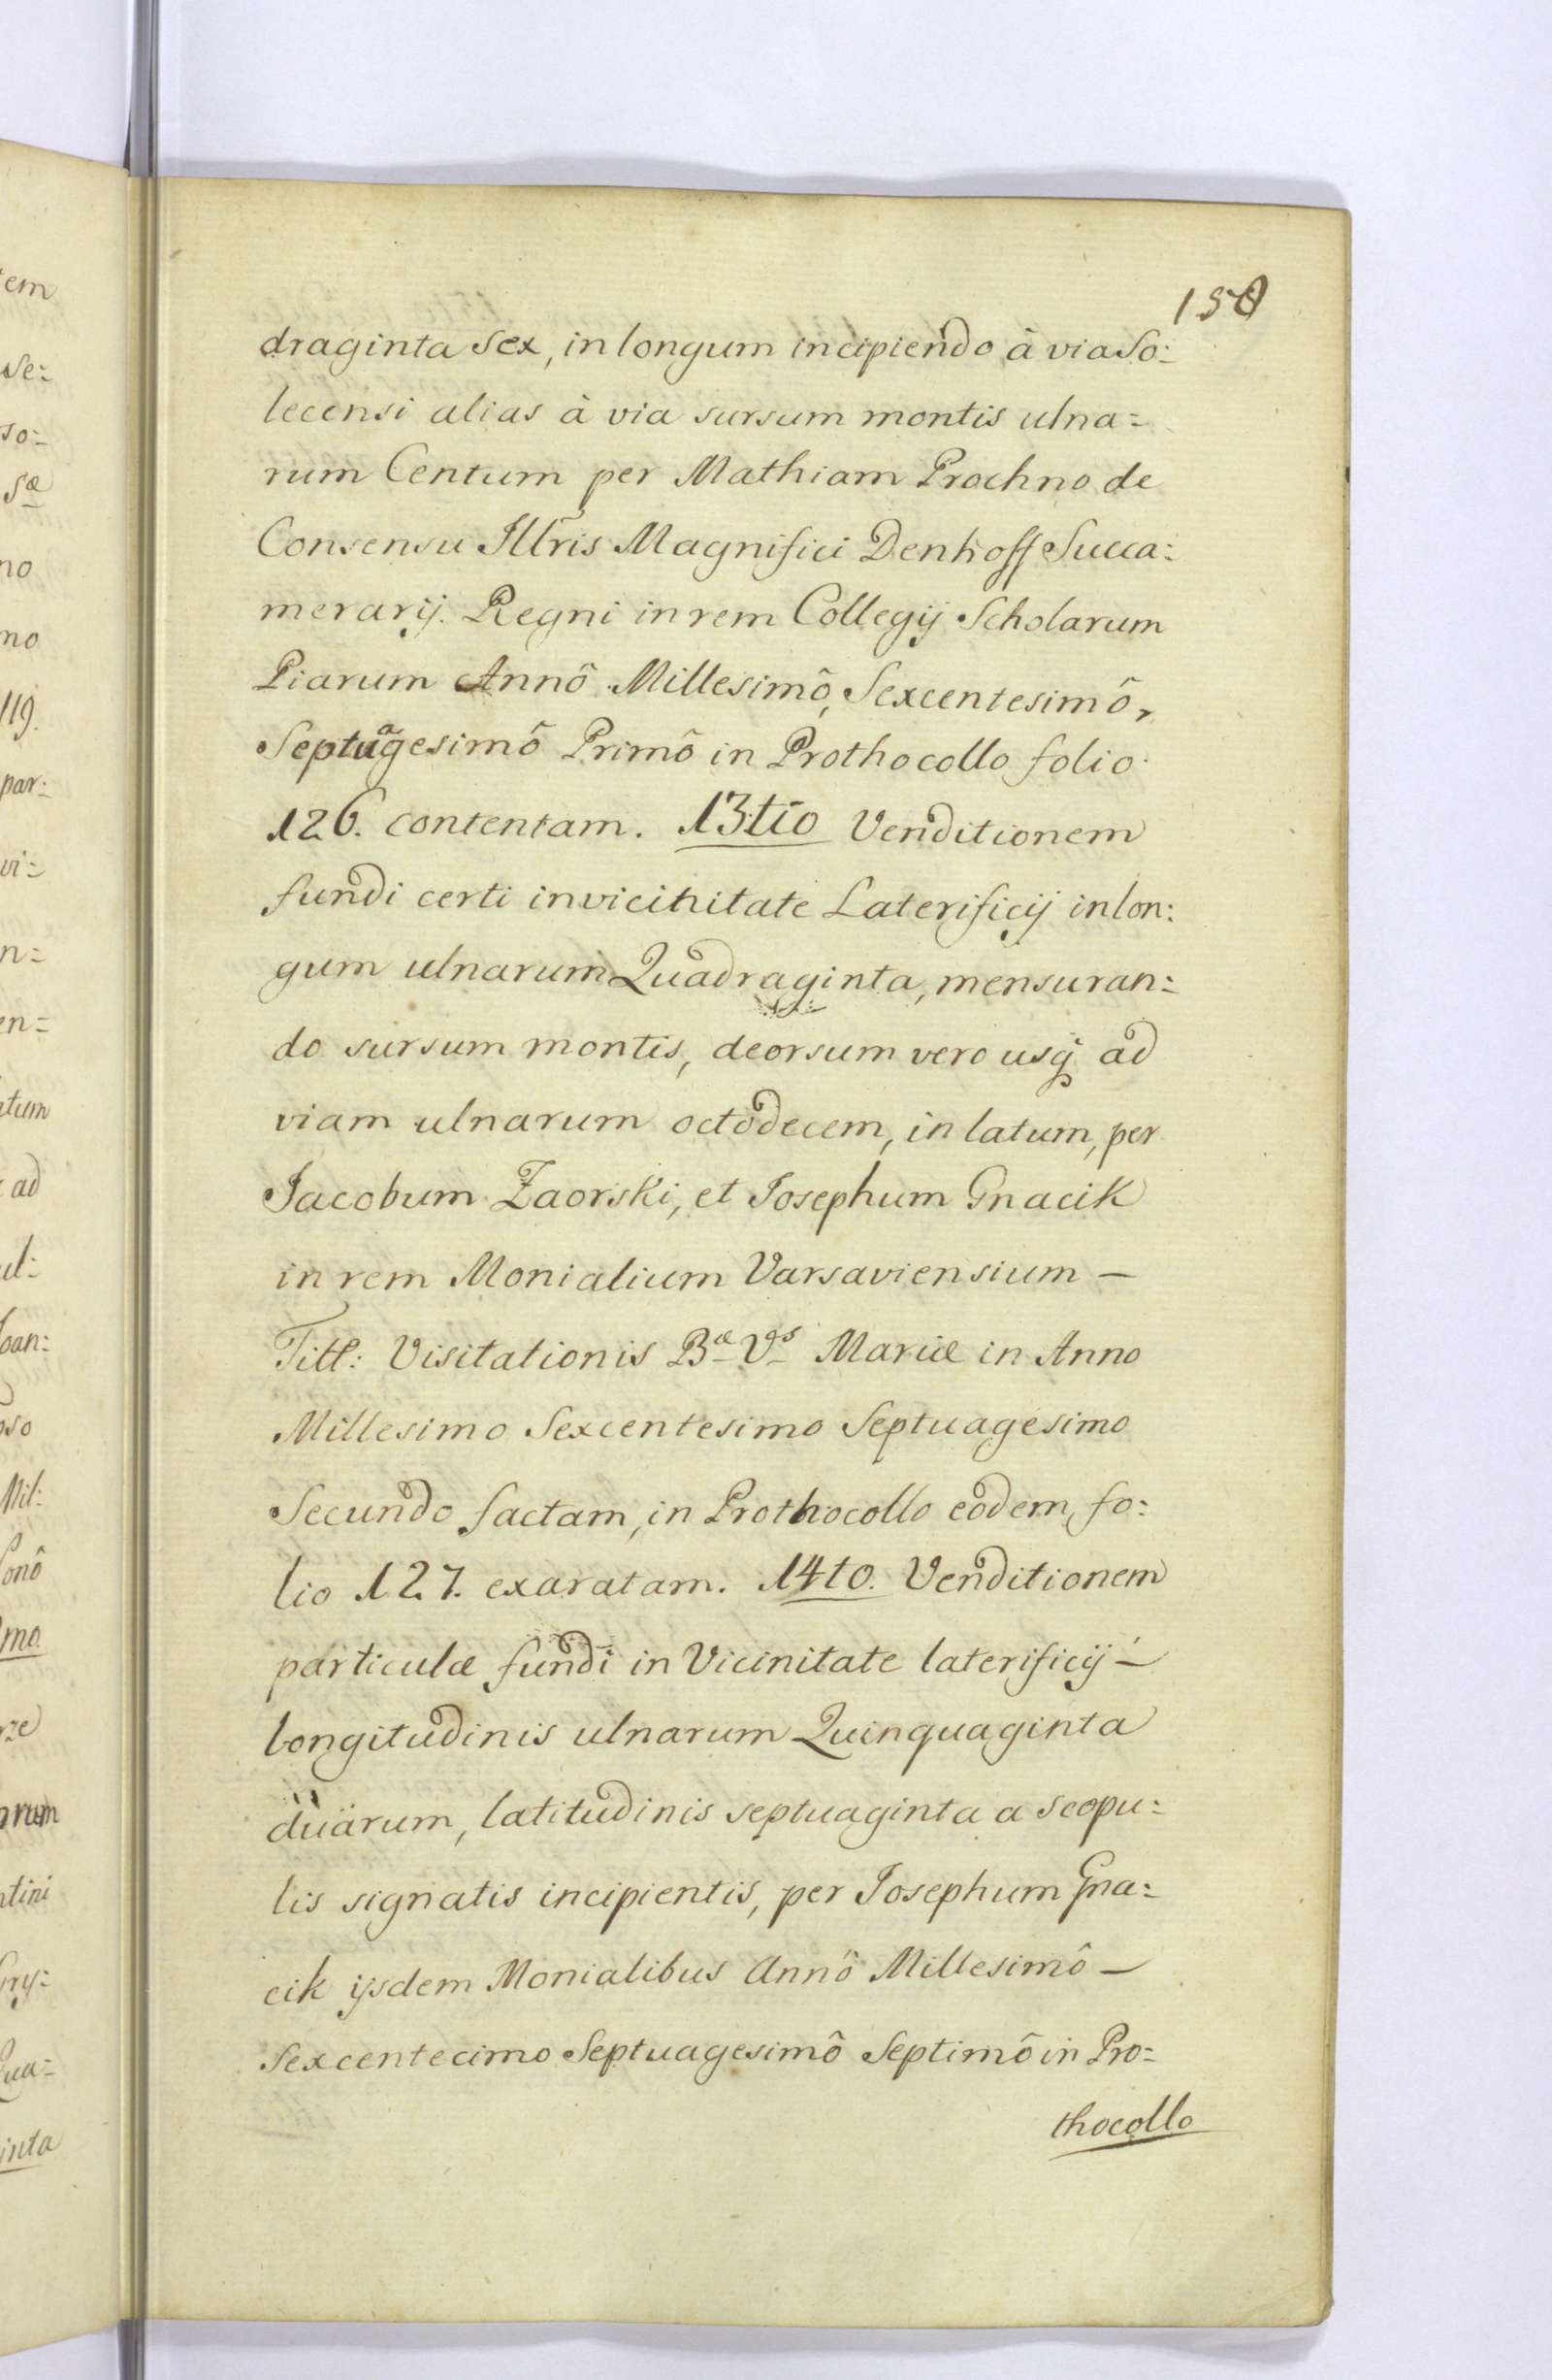 150
draginta sex, in longum incipiendo à via So:
lecensi alias à via sursum montis ulna=
rum Centum per Mathiam Prochno de
Consensu Illris Magnifici Denhoff Succa:
merarij Regni in rem Collegij Scholarum
Piarum Annô Millesimô, Sexcentesimô,
Septuagesimô Primô in Prothocollo folio
126. contentam. 13tio Venditionem
fundi certi in vicinitate Laterificij in lon:
gum ulnarum Quadraginta, mensuran:
do sursum montis, deorsum vero usq ad
viam ulnarum octodecem, in latum, per
Jacobum Zaorski, et Josephum Gnacik
in rem Monialium Varsaviensium —
Titl: Visitationis Bæ Vs Mariæ in Anno
Millesimo Sexcentesimo Septuagesimo
Secundo factam, in Prothocollo eodem, fo:
lio 127. exaratam. 14to. Venditionem
particulæ fundi in Vicinitate laterificij —
longitudinis ulnarum Quinquaginta
duarum, latitudinis septuaginta a scopu:
lis signatis incipientis, per Josephum Gna:
cik ijsdem Monialibus Annô Millesimô —
Sexcentecimo Septuagesimô Septimô in Pro=
thocollo
em
se:
so=
sæ
no
mo
119.
par:
vi=
n=
en=
tum
ad
ul:
Joan:
oso
Mil:
onô
mo
rze
orum
ntini
ry:
Qua=
inta